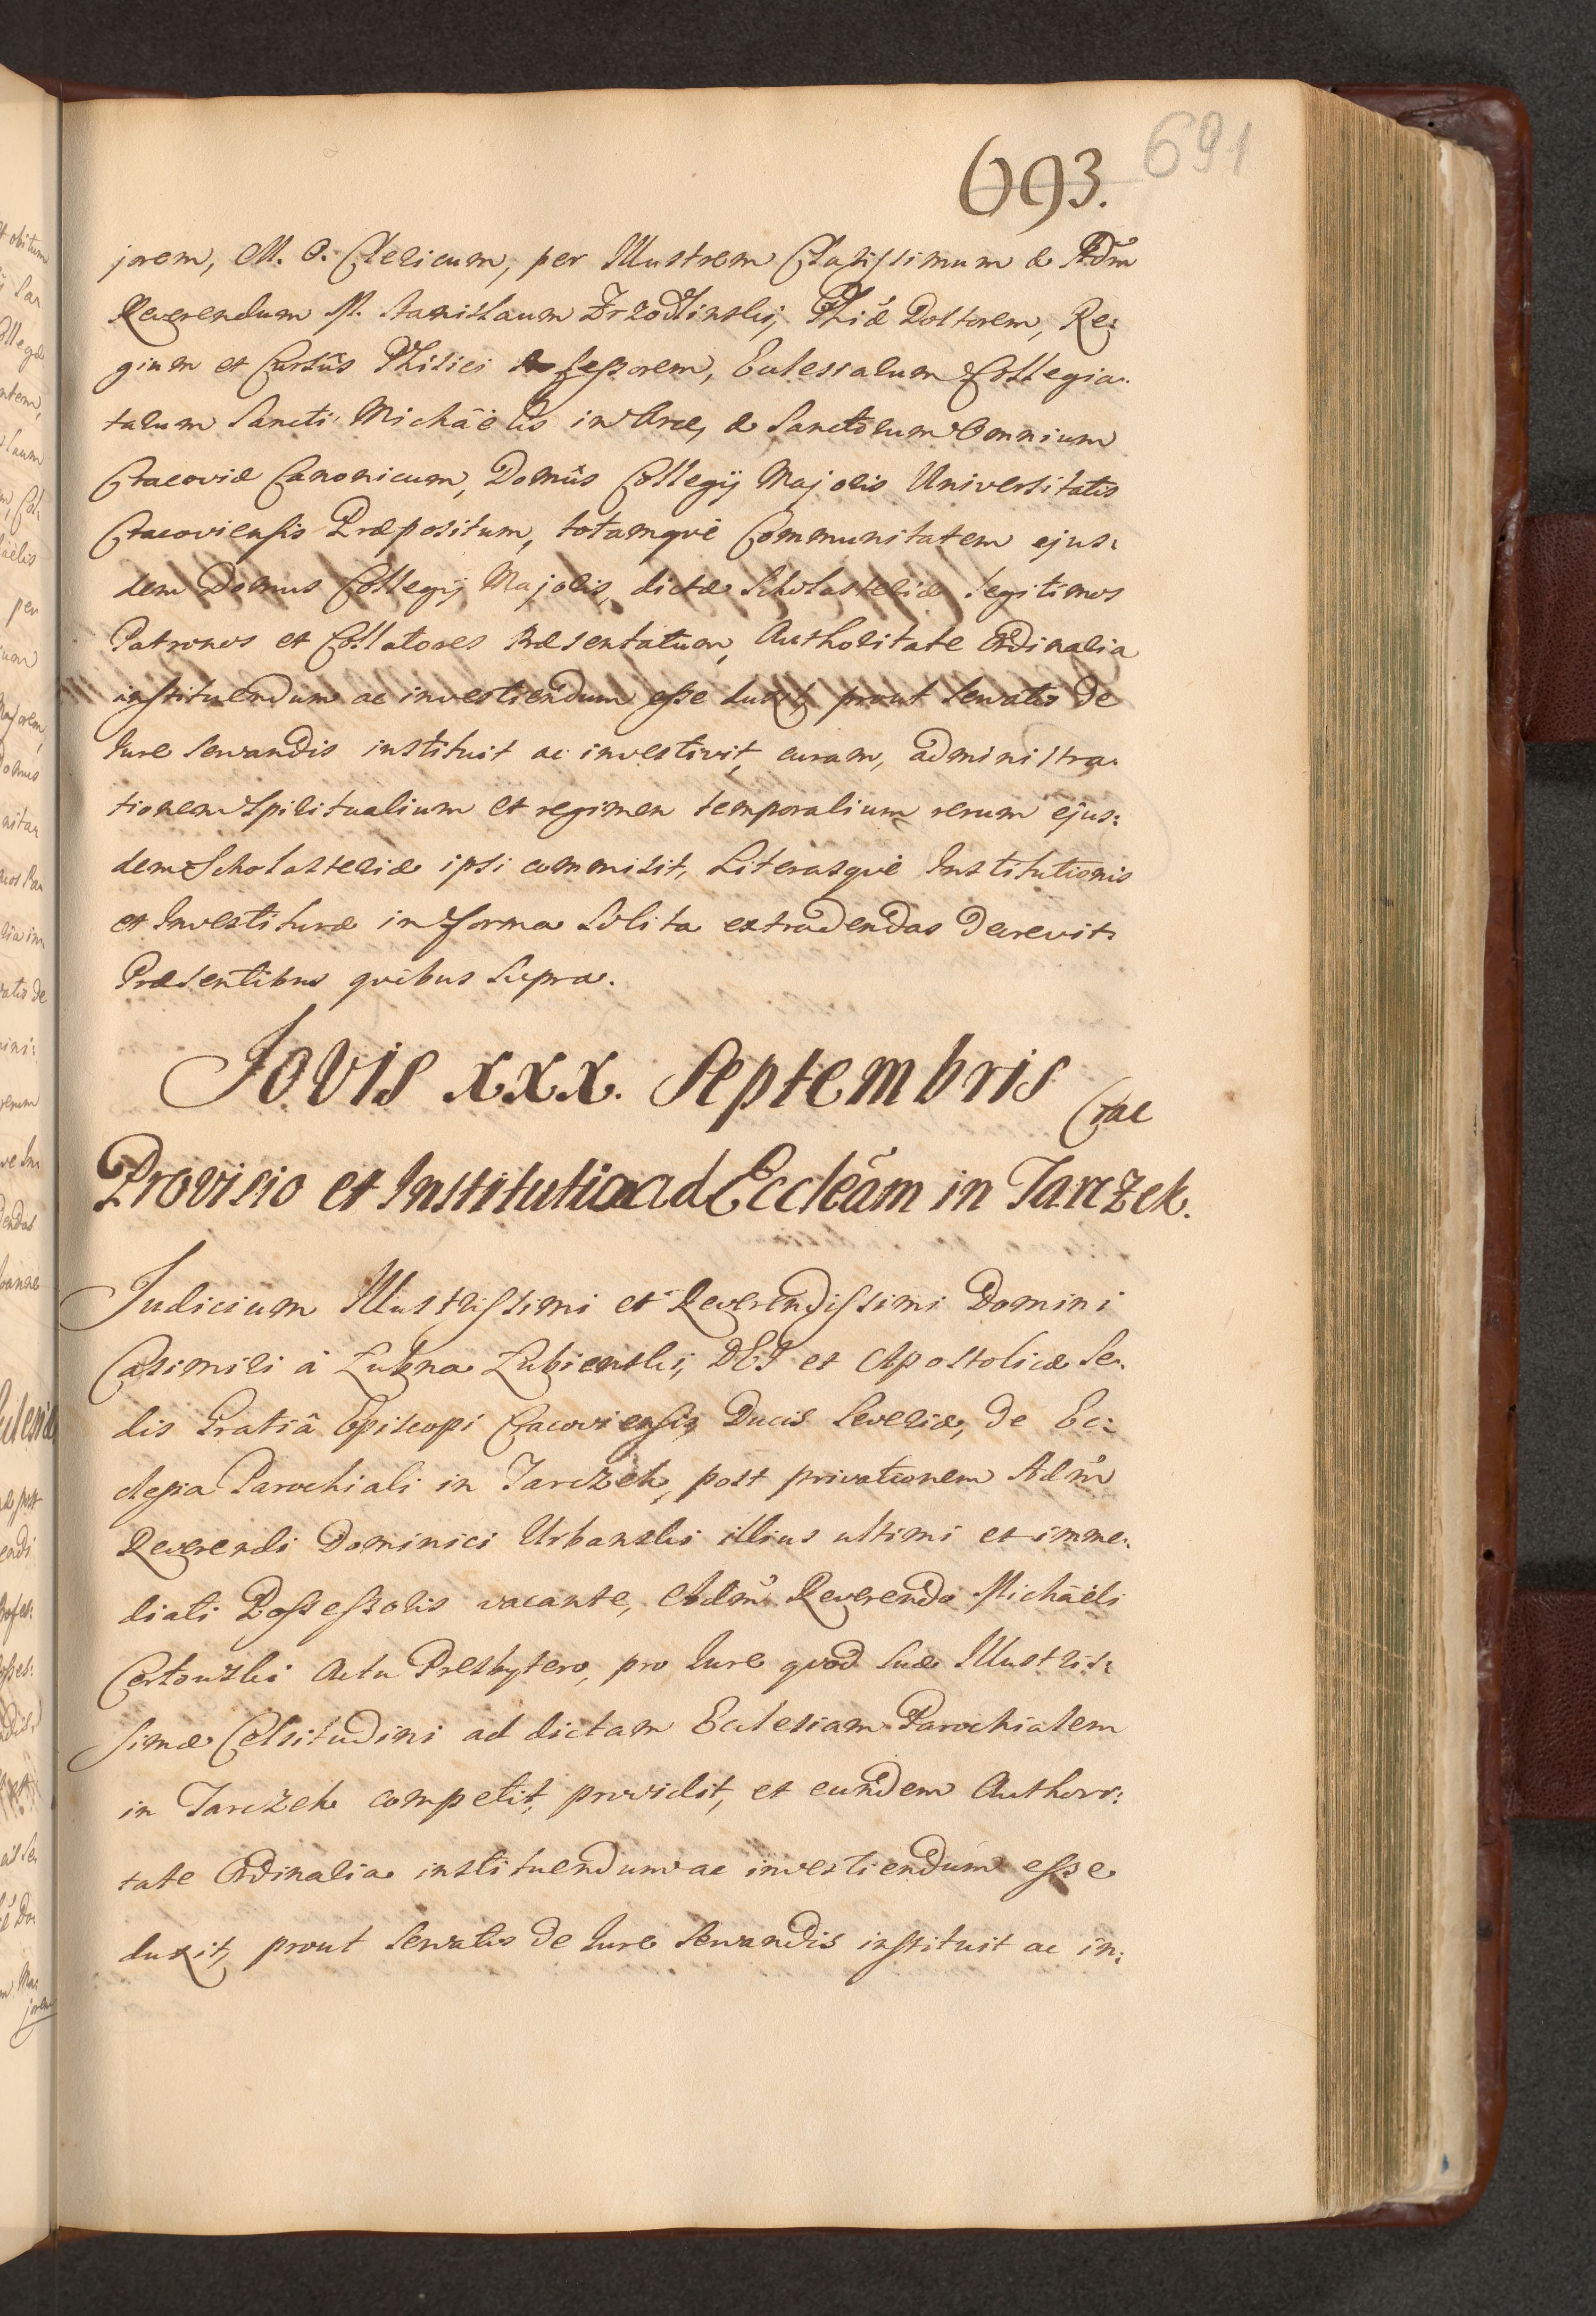 693. 691
jorem, M. O. Clericum, per Illustrem Clarissimum & Adm̃
Reverendum M. Stanislaum Zrzodlinski, Phiæ Doctorem, Re:
gium et Cursûs Phisici Professorem, Ecclesiarum Collegia:
tarum Sancti Michäelis in Arce, & Sanctorum Omnium
Cracoviæ Canonicum, Domûs Collegij Majoris Universitatis
Cracoviensis Præpositum, totamqvè Communitatem ejus:
dem Domus Collegij Majoris, dictæ Scholasteriæ legitimos
Patronos et Collatores Præsentatum, Authoritate Ordinaria
instituendum ac investiendum esse duxit, prout servatis de
Jure servandis instituit ac investivit, curam, administra:
tionem Spiritualium et regimen temporalium rerum ejus:
dem Scholasteriæ ipsi commisit, Literasqvè Institutionis
et Investituræ in forma Solita extradendas decrevit.
Præsentibus qvibus Supra.
Jovis xxx. Septembris
Crac
Provisio et Institutio ad Eccleãm in Tarczek.
Judicium Illustrissimi et Reverendissimi Domini
Casimiri à Łubna Łubienski, DEI et Apostolicæ Se:
dis Gratiâ Episcopi Cracoviensis, Ducis Severiæ, de Ec:
clesia Parochiali in Tarczek, post privationem Adm̃
Reverendi Dominici Urbanski illius ultimi et imme:
diati Possessoris vacante, Adm̃ Reverendo Michäeli
Certowski Actu Presbytero, pro Jure qvod Suæ Illustris:
simæ Celsitudini ad dictam Ecclesiam Parochialem
in Tarczek competit, providit, et eundem Authori:
tate Ordinaria instituendum ac investiendum esse
duxit, prout servatis de Jure servandis instituit ac in: